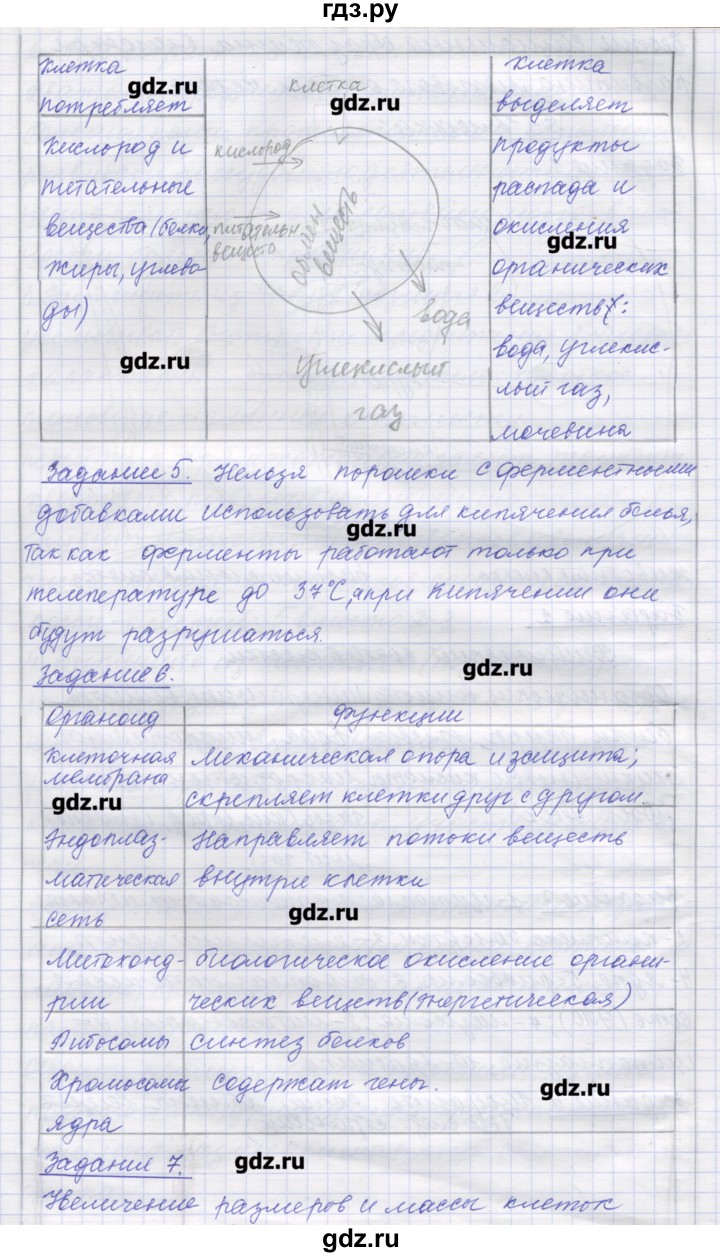 гдз.ру
Клетка потребляет
gdz.ru
клетка
gdz.ru
Клетка выделяет
Кислород и
питательные
вещества (белки,
жиры, углево-
ды)
gdz.ru
кислород
питательн
веществ
обмен
веществ
вода
углекислый
газ
продукты
распада и
окисления
gdz.ru
органических
веществ:
вода, углекис-
лый газ,
мочевина
Задание 5. Нельзя порошки с ферментными
добавками использовать для кипячения белья,
gdz.ru
так как ферменты работают только при
температуре до 37°С, а при кипячении они
будут разрушаться.
Задание 6.
gdz.ru
Органоид функции
Клеточная мембрана
Механическая опора и защита;
скрепляет клетки друг с другом.
gdz.ru
Эндоплаз-
матическая
сеть
Направляет потоки веществ
внутри клетки
gdz.ru
Митохонд-
рии
биологическое окисление органи-
ческих веществ (энергетическая)
Рибосомы синтез белков
Хромосомы
ядра
содержат гены.
gdz.ru
Задания 7.
gdz.ru
Увеличение размеров и массы клеток
gdz.ru